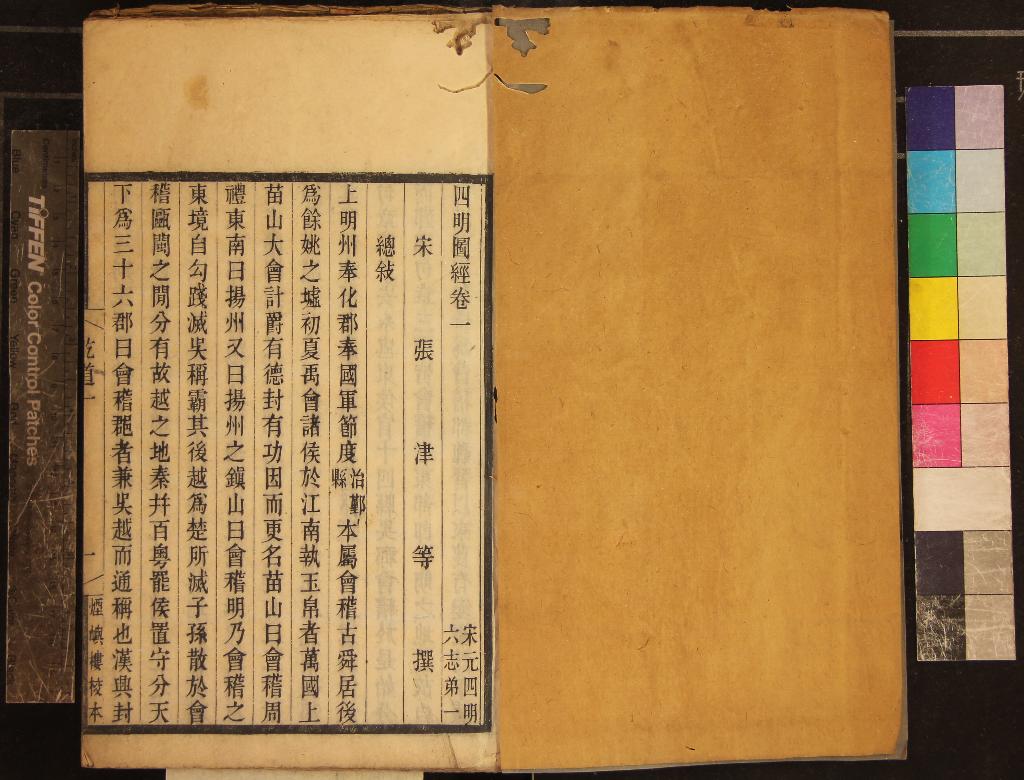 四明圖經卷一 宋元四明六志弟一
宋 張 津 等 撰
總敍
上明州奉化郡奉國軍節度治鄞縣本屬會稽古舜居後
爲餘姚之墟初夏禹會諸侯於江南執玉帛者萬國上
苗山大會計爵有德封有功因而更名苗山曰會稽周
禮東南曰揚州又曰揚州之鎭山曰會稽明乃會稽之
東境自勾踐滅吳稱霸其後越爲楚所滅子孫散於會
稽甌閩之閒分有故越之地秦幷百粵罷侯置守分天
下爲三十六郡曰會稽郡者兼吳越而通稱也漢興封
乾道一
一
煙嶼樓校本
TIFFEN Color Control Patches
Blue
Cyan
Green
Yellow